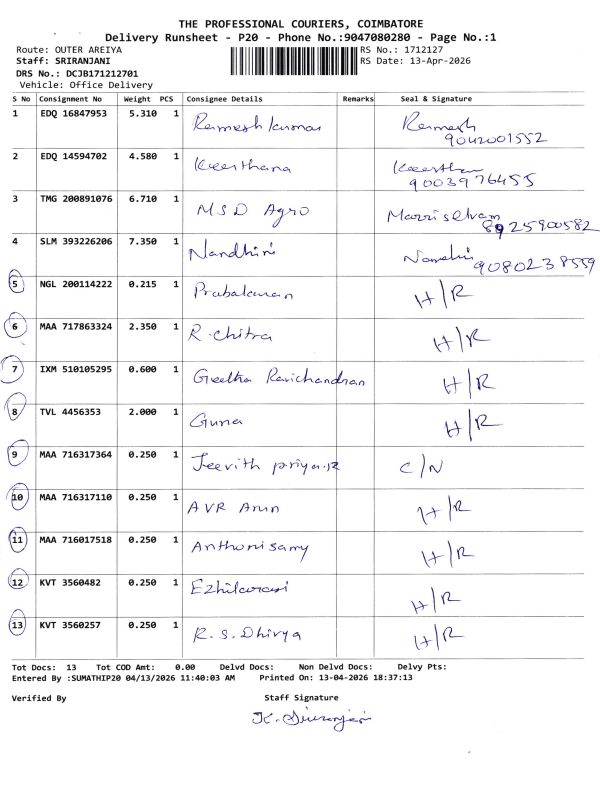 THE PROFESSIONAL COURIERS, COIMBATORE
Delivery Runsheet - P20 - Phone No.:9047080280 - Page No.:1
Route: OUTER AREIYA RS No.: 1712127
Staff: SRIRANJANI RS Date: 13-Apr-2026
DRS No.: DCJB171212701
Vehicle: Office Delivery
S No Consignment No Weight PCS Consignee Details Remarks Seal & Signature
1 EDQ 16847953 5.310 1 Ramesh kumar Ramesh
9042001552
2 EDQ 14594702 4.580 1 Keerthana Keerthana
9003976455
3 TMG 200891076 6.710 1 MSD Agro Marriselvam
8925900582
4 SLM 393226206 7.350 1 Nandhini Nandhini
9080238559
5 NGL 200114222 0.215 1 Prabakaran H/R
6 MAA 717863324 2.350 1 R.chitra H/R
7 IXM 510105295 0.600 1 Geetha Ravichandran H/R
8 TVL 4456353 2.000 1 Guna H/R
9 MAA 716317364 0.250 1 Jeevith priya.R C/N
10 MAA 716317110 0.250 1 AVR Arun H/R
11 MAA 716017518 0.250 1 Anthonisamy H/R
12 KVT 3560482 0.250 1 Ezhilarasi H/R
13 KVT 3560257 0.250 1 R.S.Dhivya H/R
Tot Docs: 13 Tot COD Amt: 0.00 Delvd Docs: Non Delvd Docs: Delvy Pts:
Entered By :SUMATHIP20 04/13/2026 11:40:03 AM Printed On: 13-04-2026 18:37:13
Verified By Staff Signature